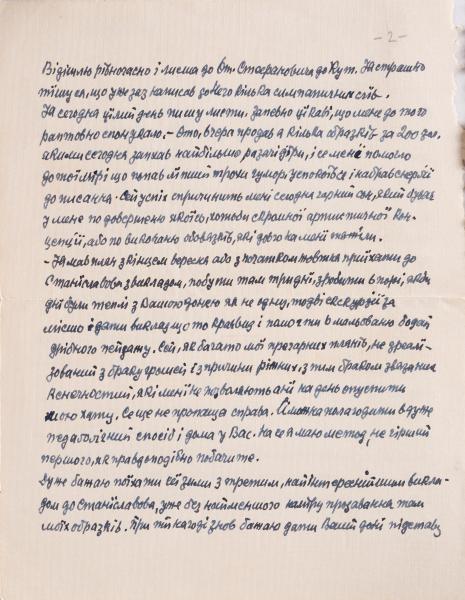 -2-
Відішлю рівночасно і листа до Вп. Стефановича до Кут. За страшно
тішуся, що уже раз написав до його кілька симпатичних слів.
За сегодня цілий день пишу листи. Запевно цікаві, що мене до того
раптовно спонукало: - Ото, вчера продав я кілька образків за 200 зол.
якими сегодня заткав найбільше разячі діри, і се мене помогло
до тої міри що попав ліпший трохи гумор, успокоївся і набрав енергії
до писання. - Сей успіх спричинить мені сегодня гарний сон, який буває
у мене по довершеню якоїсь, хотьби скромної артистичної кон-
цепції, або по виконаню обовязків, які довго на мені тяжіли.
- Я мав план з кінцем вересня або з початком жовтня приїхати до
Станіславова з викладом, побути там три дні, зробити в порі, якби
дні були теплі з Вашою донею як не одну, то дві екскурзії за
місто і дати виклад що то краєвид і помогти в мальовано бодай
дрібного пейзажу. Сей, як багато мої прегарних плянів, не зреалі-
зований з браку грошей і з причини ріжних, з тим браком звязаних
конечностий, які мені не позволяють ані на день опустити
мою хату. Се ще не пропаща справа. Її можна полагодити в дуже
педагогічний спосіб і дома у Вас. На се я маю метод, не гірший
першого, як правдоподібно побачите.
Дуже бажаю поїхати сеї зими з третим, найінтереснійшим викла-
дом до Станіславова, уже без найменшого наміру продавання там
моїх образків. При тій нагоді знов бажаю дати Вашій доні підставу